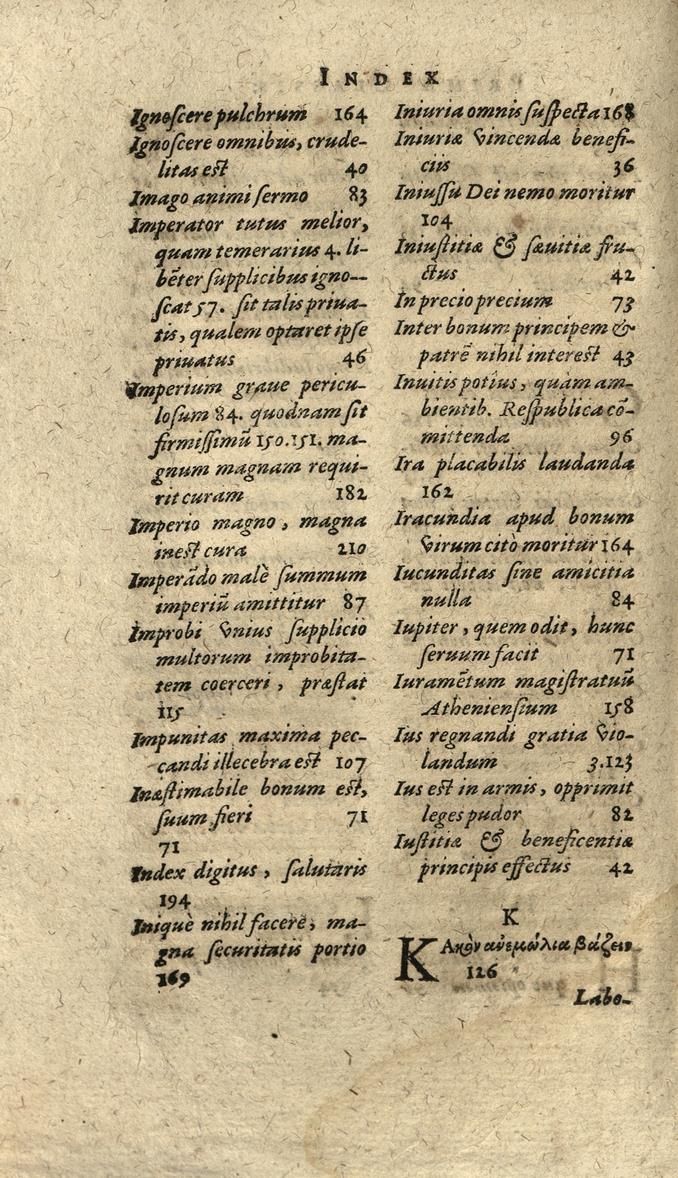 INDEX
Ignoscere pulchrum 164
Ignoscere omnibus, crude-
litas est 40
Imago animi sermo 83
Imperator tutus melior,
quam temerarius 4. li-
bēter supplicibus igno--
scat 57. sit talis priua-
tis, qualem optaret ipse
priuatus 46
Imperium graue pericu-
losum 84. quodnam sit
firmissimū 150.151. ma-
gnum magnam requi-
rit curam 182
Imperio magno, magna
inest cura 210
Imperādo malè summum
imperiū amittitur 87
Improbi vnius supplicio
multorum improbita-
tem coerceri, præstat
115
Impunitas maxima pec-
candi illecebra est 107
Inæstimabile bonum est,
suum fieri 71
71
Index digitus, salutaris
194
Iniquè nihil facere, ma-
gna securitatis portio
169
Iniuria omnis suspecta 168
Iniuriæ vincendæ benefi-
ciis 36
Iniussu Dei nemo moritur
104
Iniustitiæ & sæuitiæ fru-
ctus 42
In precio precium 73
Inter bonum principem &
patrē nihil interest 43
Inuitis potius, quàm am-
bientib. Respublica cō-
mittenda 96
Ira placabilis laudanda
162
Iracundia apud bonum
virum citò moritur 164
Iucunditas sine amicitia
nulla 84
Iupiter, quem odit, hunc
seruum facit 71
Iuramētum magistratuū
Atheniensium 158
Ius regnandi gratia vio-
landum 3.123
Ius est in armis, opprimit
leges pudor 82
Iustitiæ & beneficentiæ
principis effectus 42
K
Κακὸν ἀνεμώλια βάζειν
126
Labo-